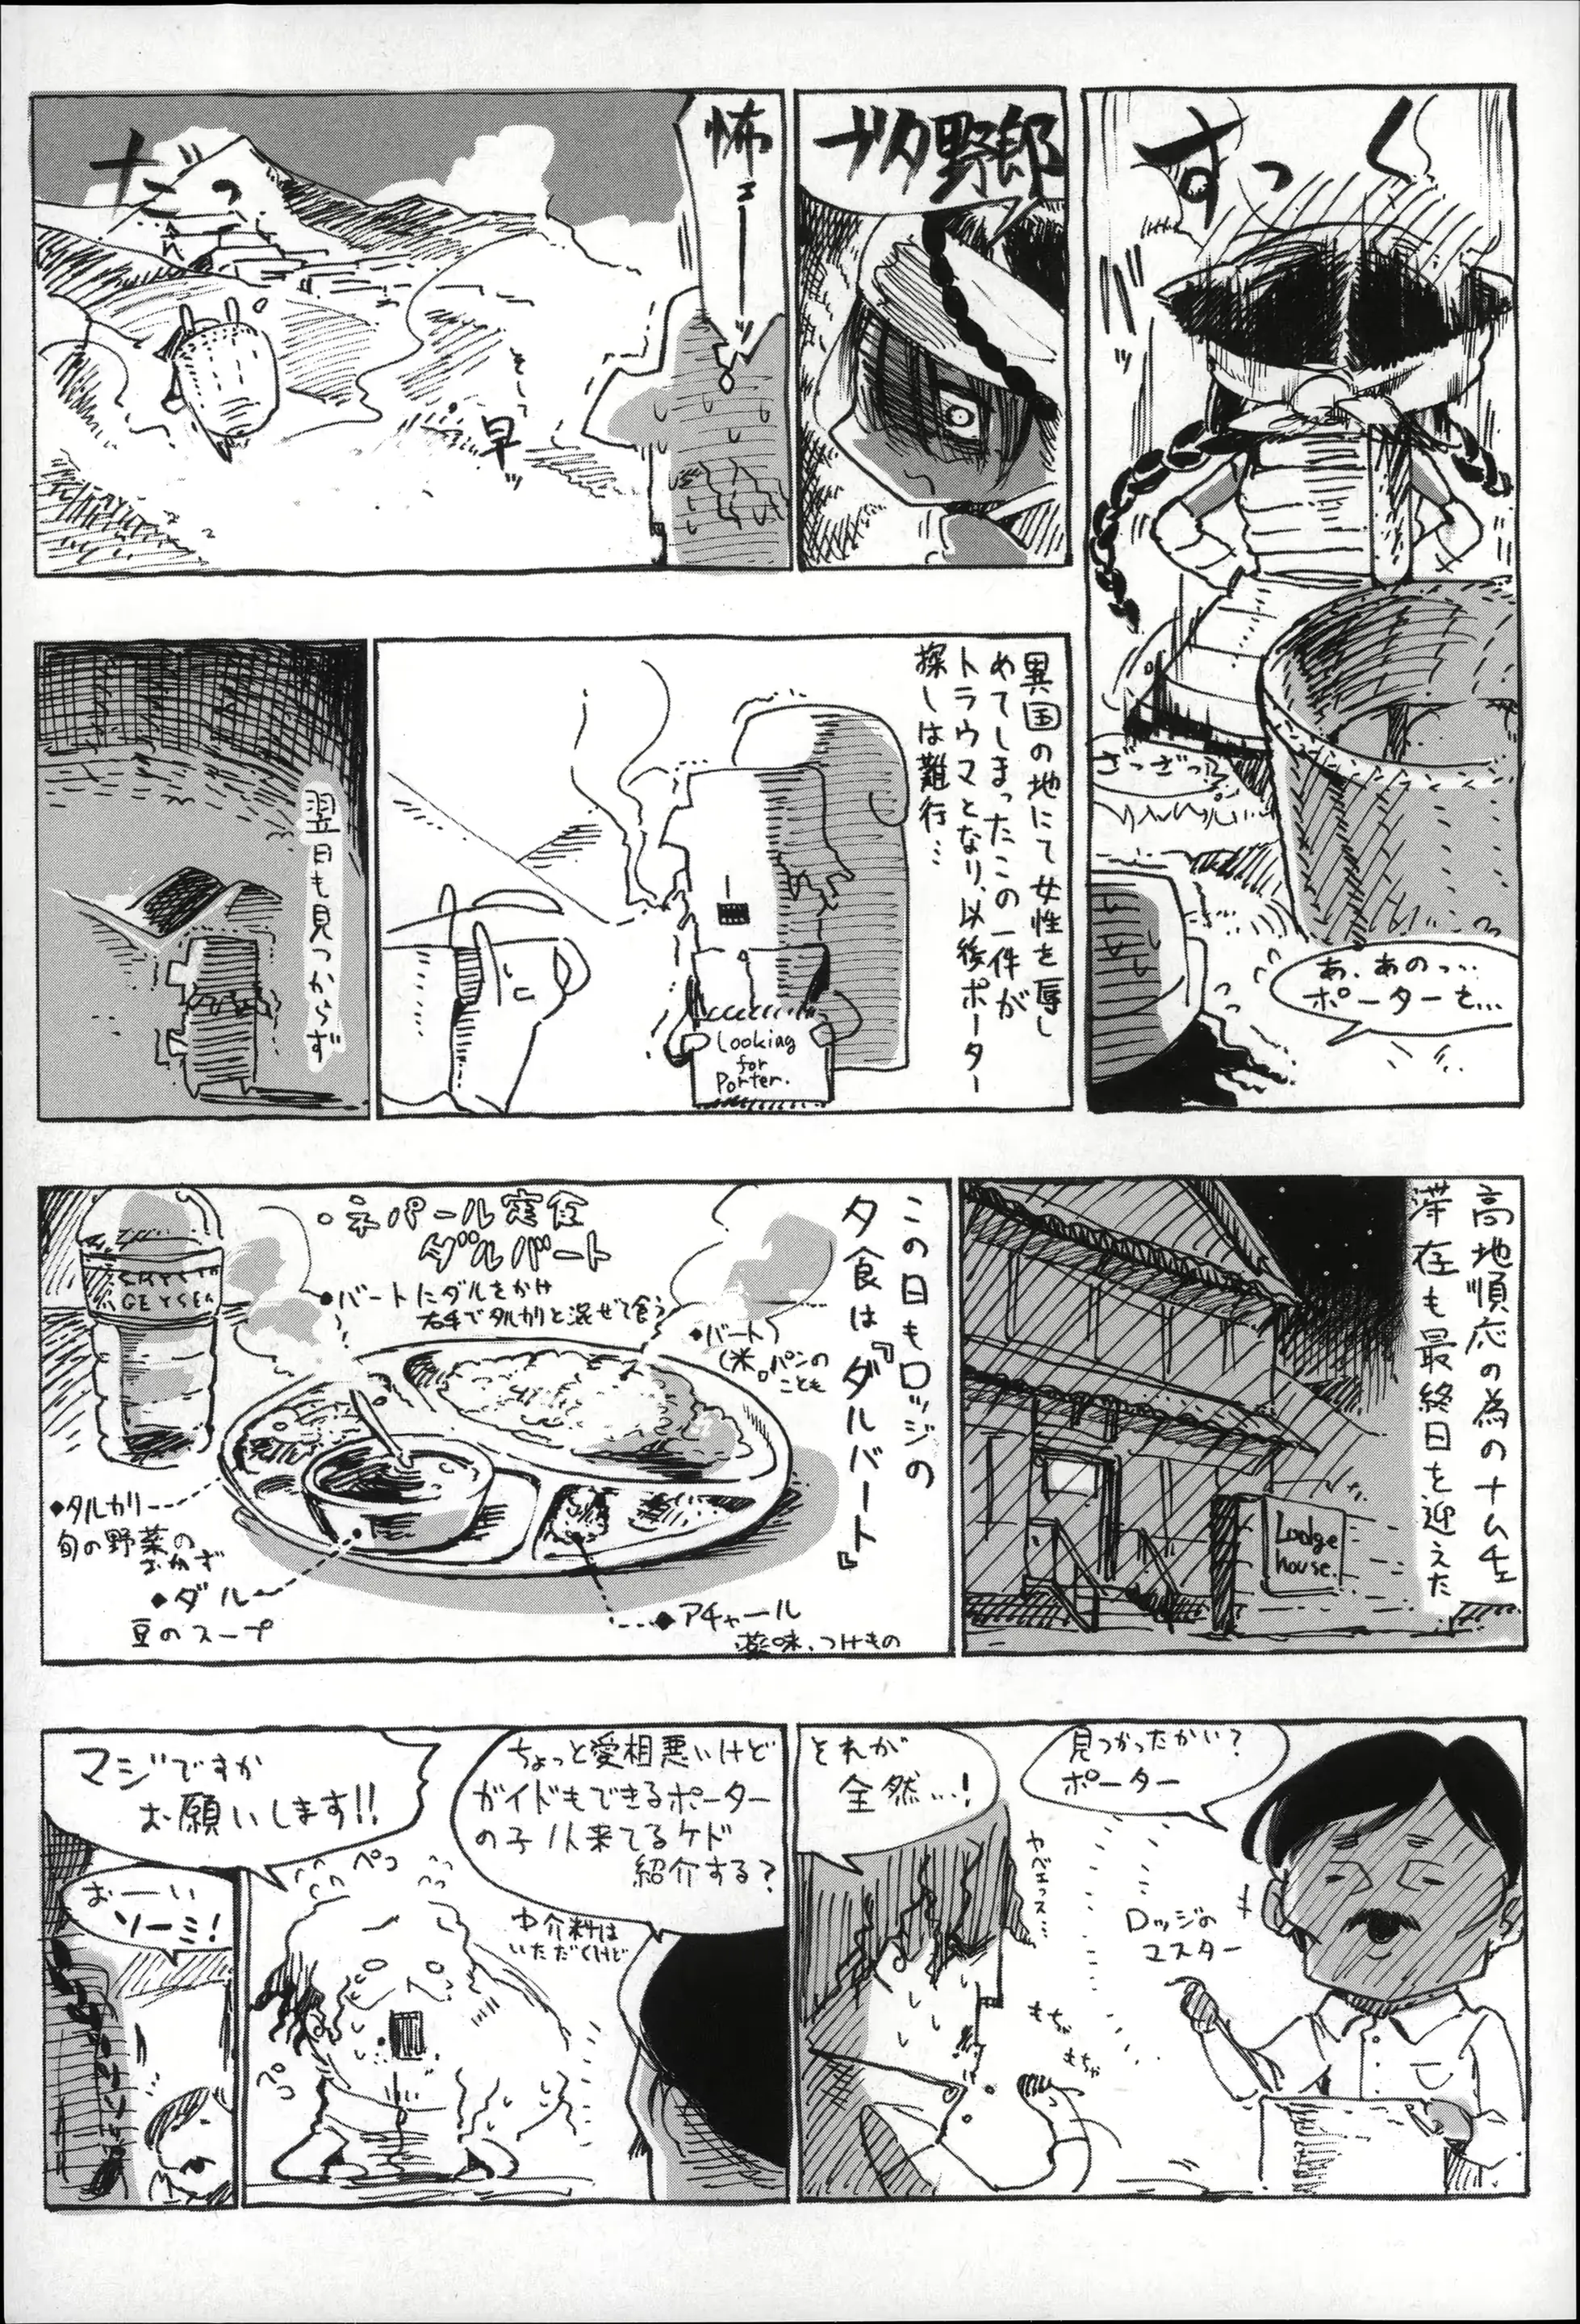 すっく
ざっざっ
あ、あのっ…
ポーターを…
ブタ野郎
怖
ェーーッ
ダッ
早ッ
異国の地にて女性を辱し
めてしまったこの一件が
トラウマとなり、以後ポーター
探しは難行…
Looking
for
Porter.
翌日も見つからず
高地順応の為のナムチェ
滞在も最終日を迎えた
Lodge
house.
この日もロッジの
夕食は『ダルバート』
・ネパール定食
ダルバート
◆バートにダルをかけ
右手でタルカリと混ぜて食う
◆バート
(米。パンの
ことも
◆タルカリ
旬の野菜の
おかず
◆ダル
豆のスープ
◆アチャール
薬味、つけもの
GEYSER
見つかったかい?
ポーター
ロッジの
マスター
それが
全然…!
やべェっス…
もちゃ
もちゃ
ちょっと愛相悪いけど
ガイドもできるポーター
の子1人来てるケド
紹介する?
中介料は
いただくけど
マジですか
お願いします!!
ペコ
ペコ
おーい
ソーミ!